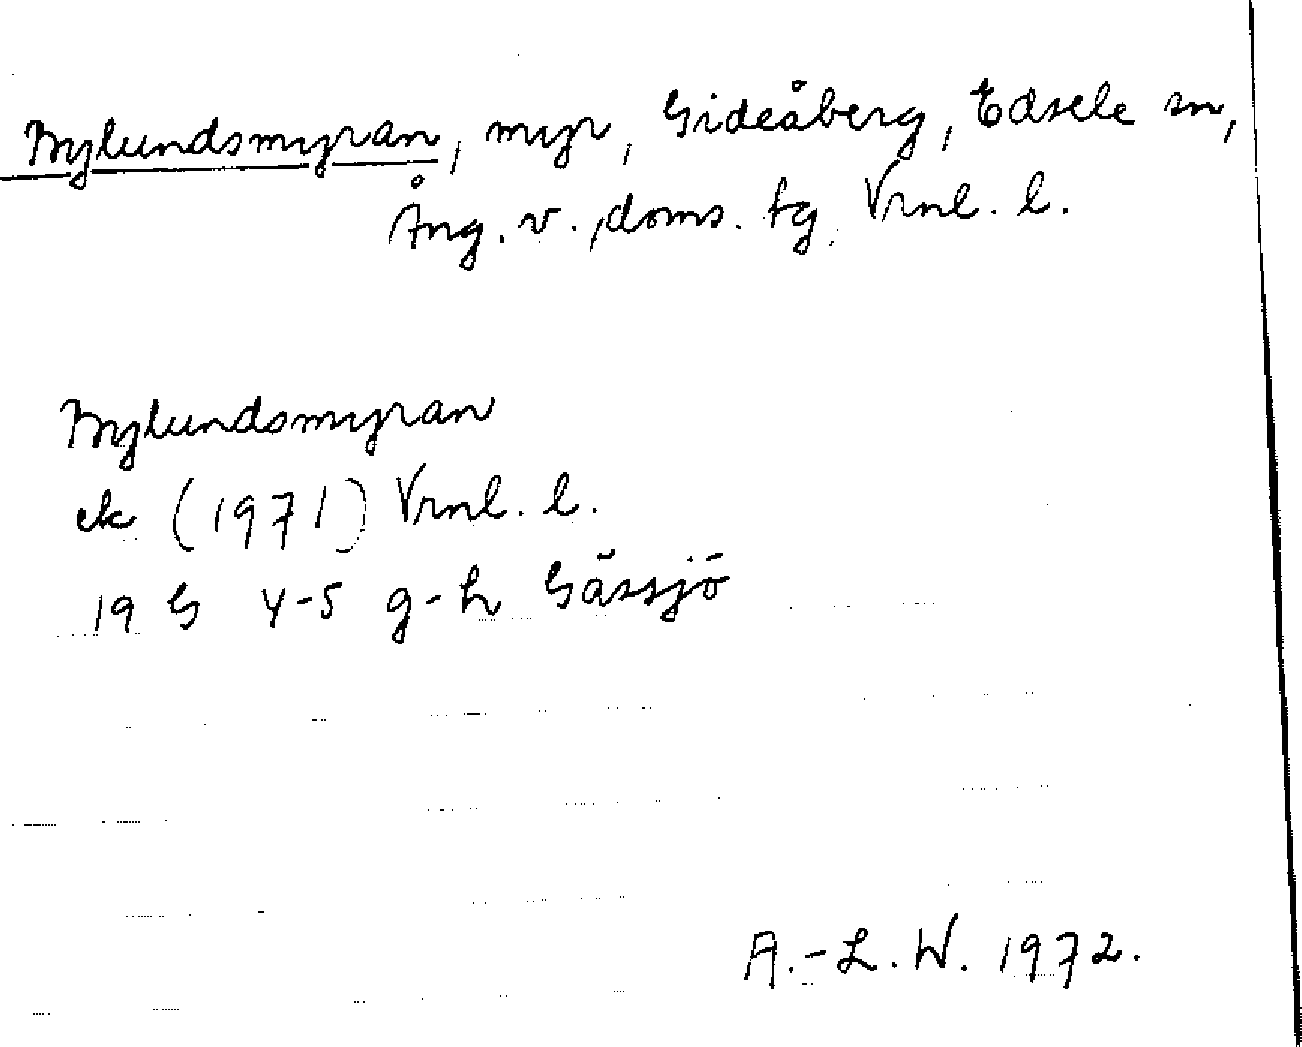 Nylundsmyran, myr, Gideåberg, Edsele sn,
Ång. v., doms. tg. Vrml. l.
Nylundsmyran
ek (1971) Vrml. l.
19 G 4-5 g-h Gåssjö
A.-L. W. 1972.